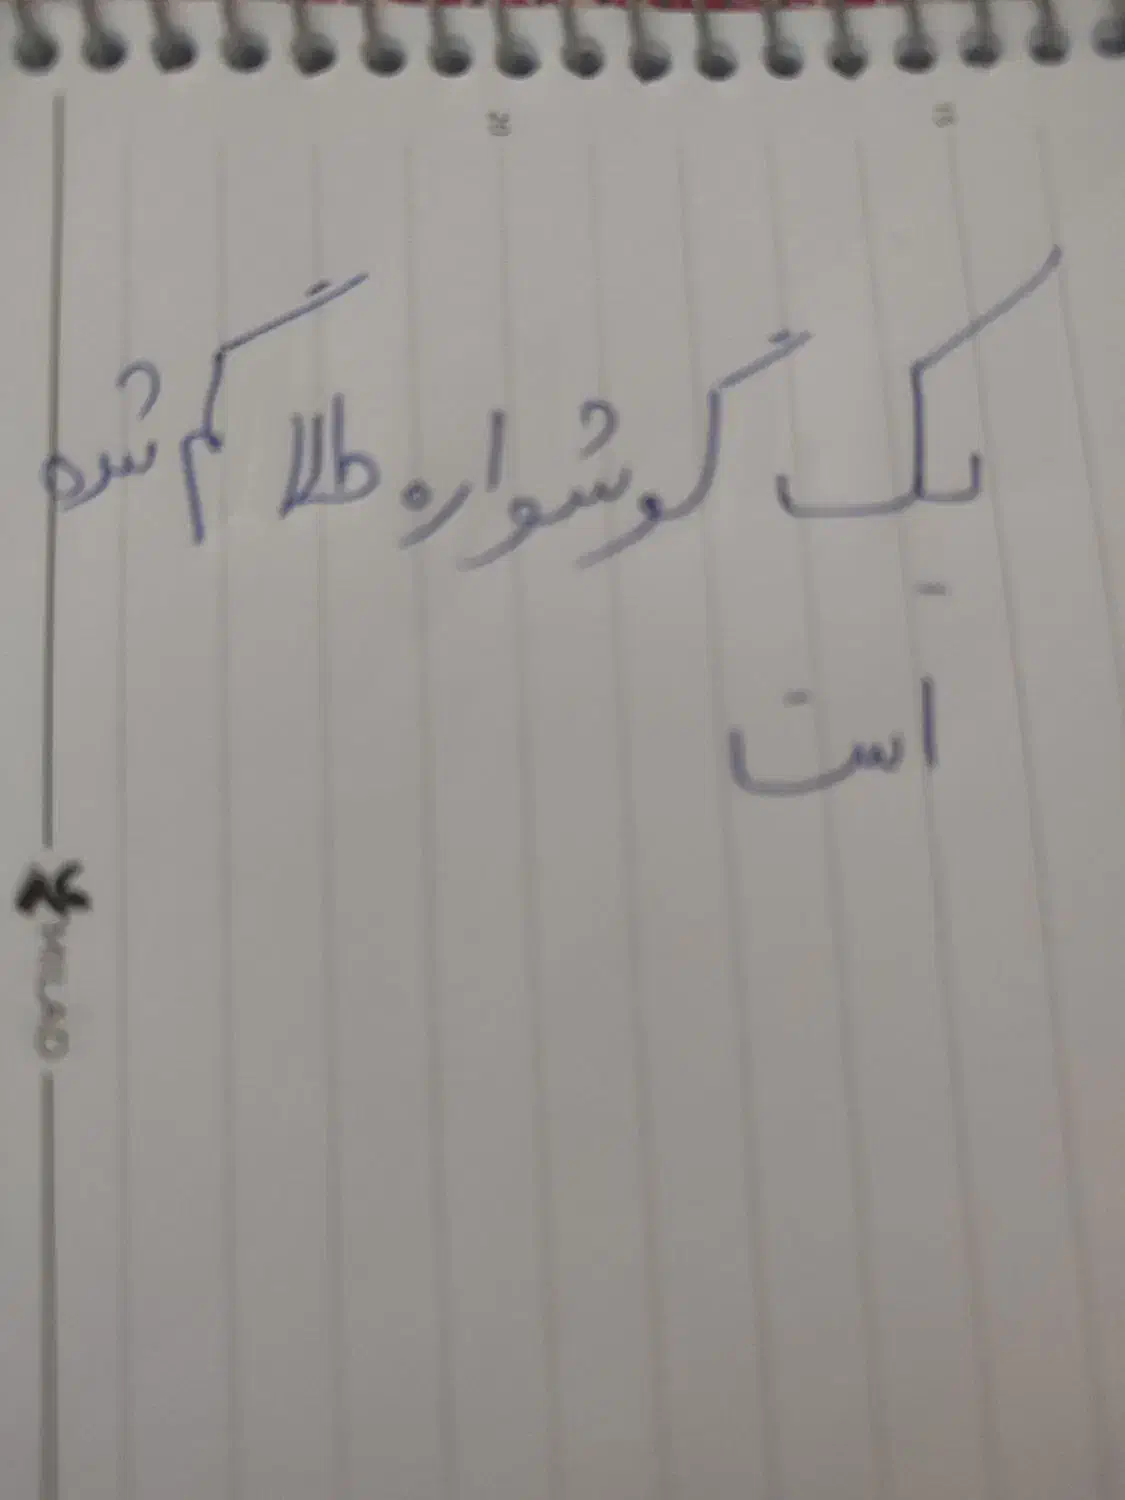 یک گوشواره طلا گم شده
است
MILAD
20
15